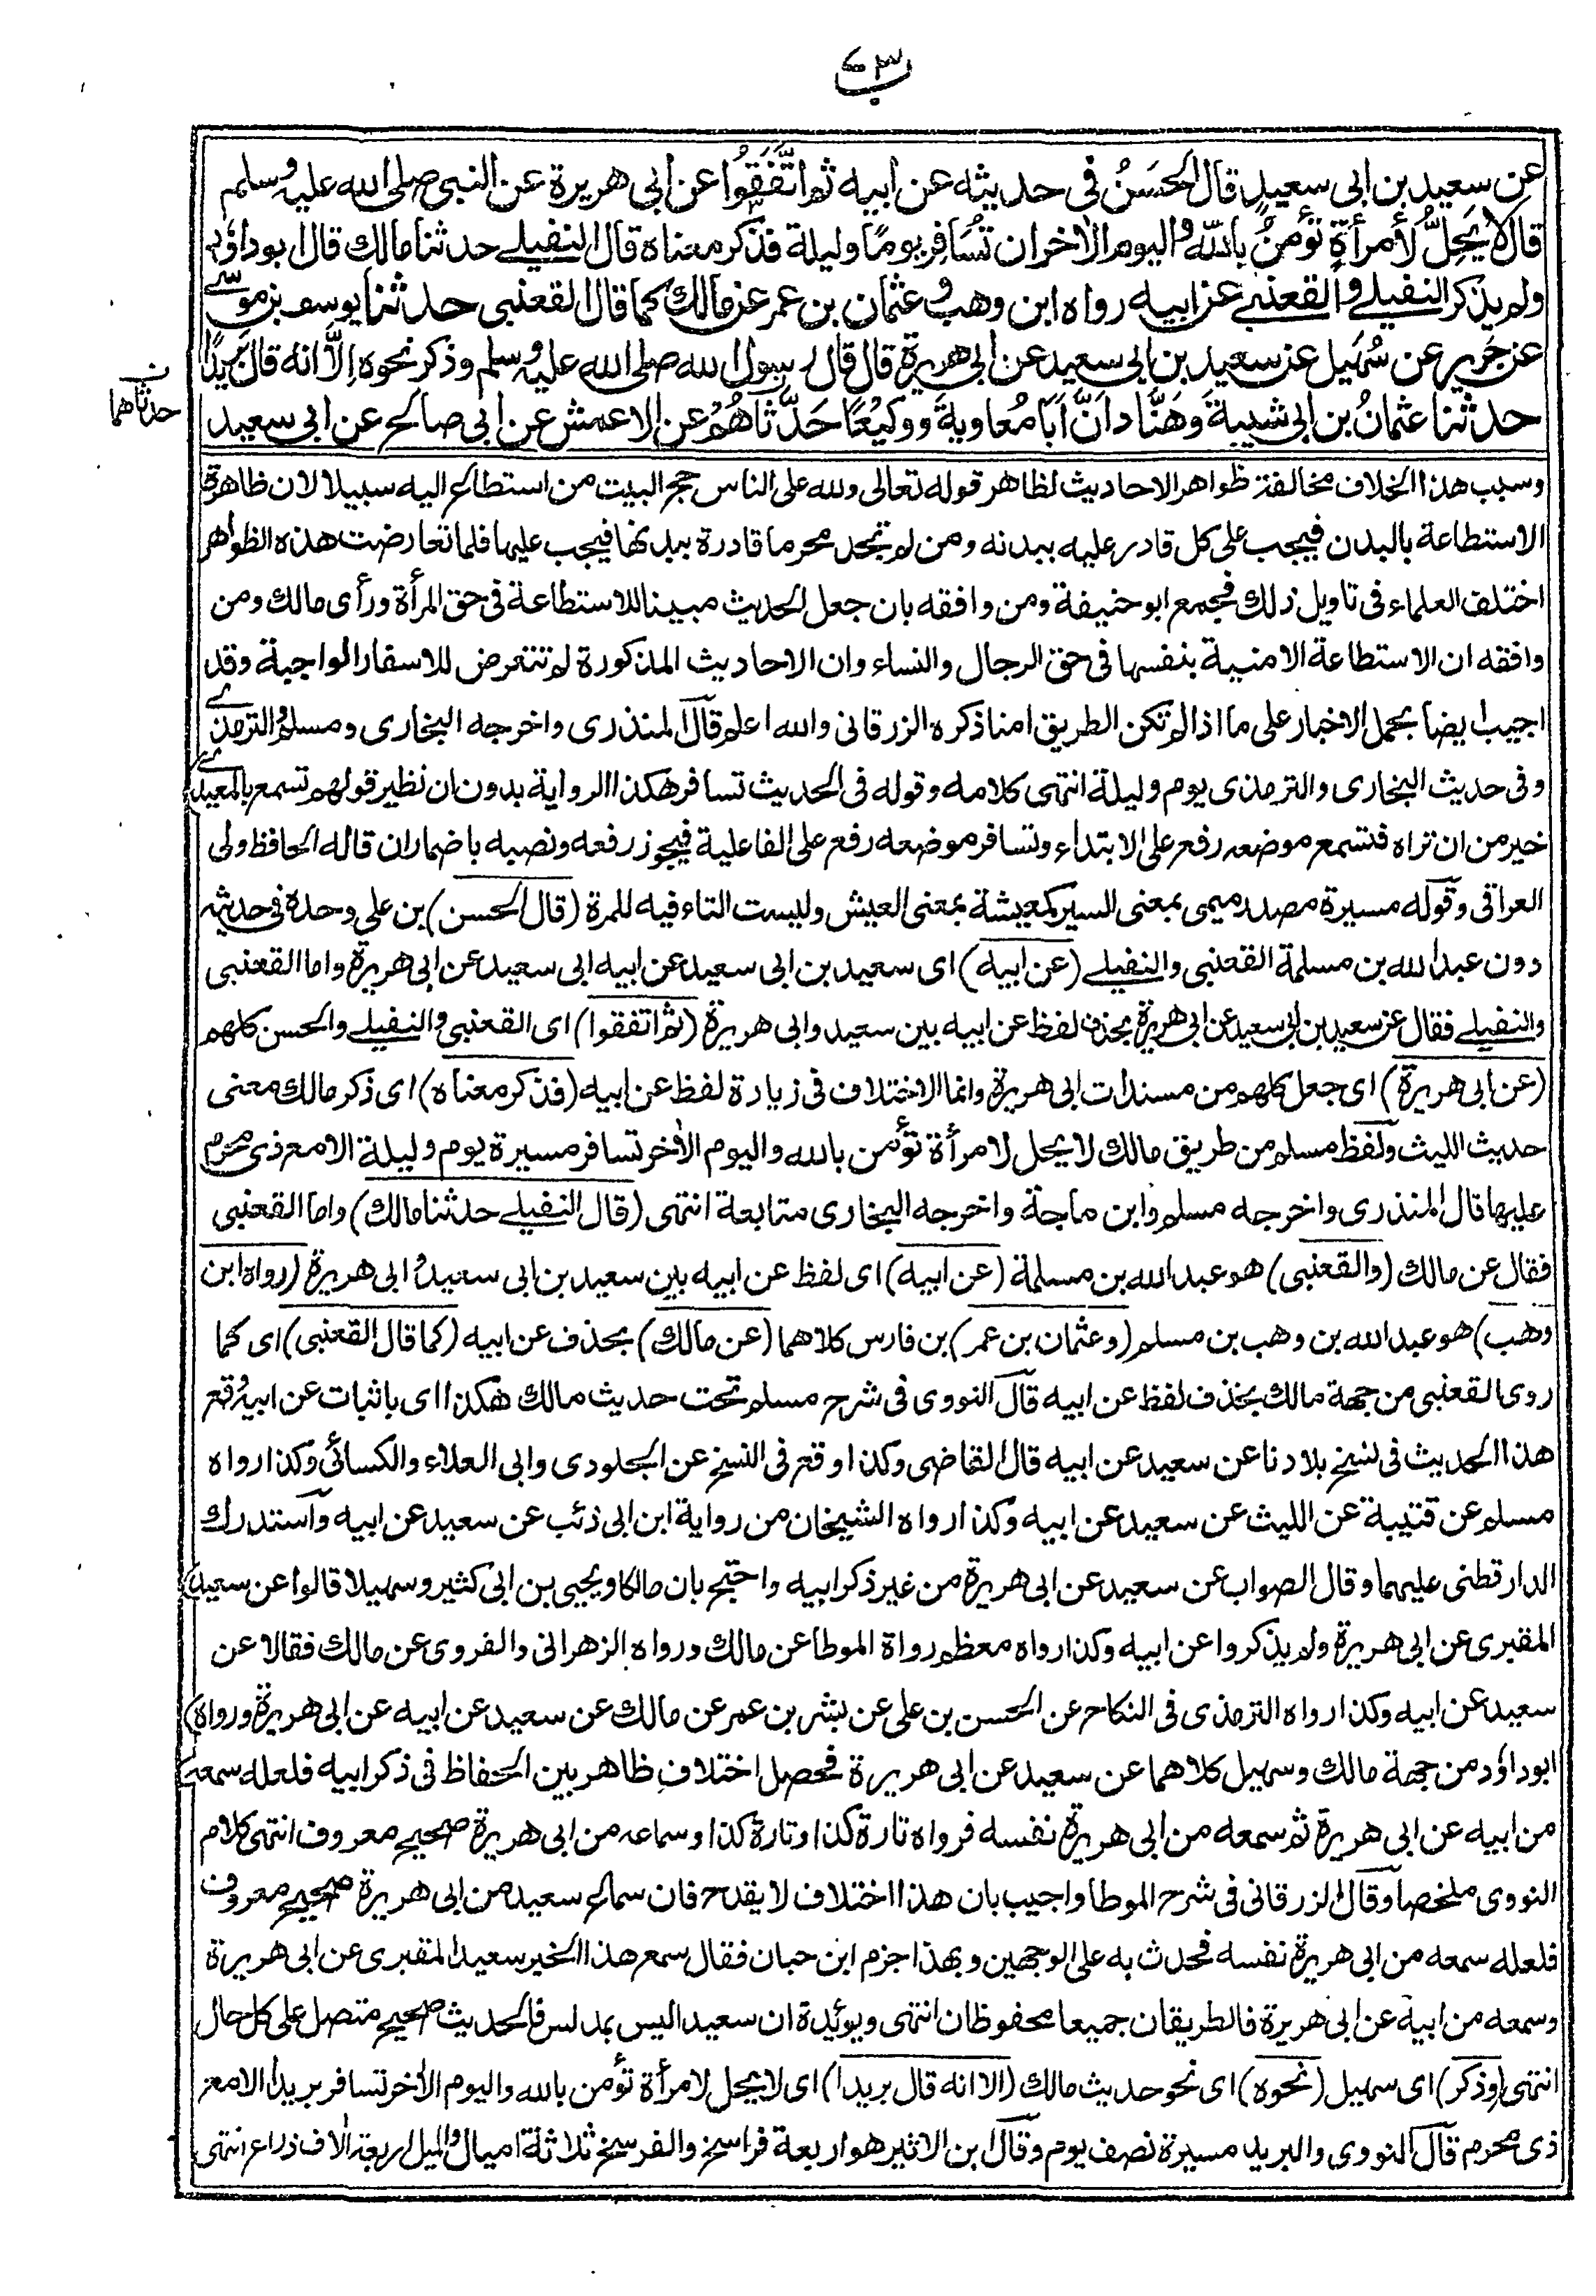 عن سعيد بن ابى سعيدٍ قال الحَسَنُ فى حديثه عن ابيه ثم اتَّفَقُوا عن ابى هريرة عن النبى صلى الله عليه وسلم
قال لا يَحِلُّ لأمرأةٍ تؤمنُ بالله واليوم الاٰخر ان تُسَافِر يومًا وليلة فذكر معناه قال النفيلى حدثنا مالك قال ابو داؤد
ولم يذكر النفيلى والقعنبى عن ابيه رواه ابن وهب وعثمان بن عمر عن مالك كما قال القعنبى حدثنا يوسف بن موسى
عن جَرير عن سُهَيل عن سعيد بن ابى سعيد عن ابى هريرة قال قال رسول الله صلى الله عليه وسلم وذكر نحوه اِلَّا انه قال بَرِيدًا
حدثنا عثمانُ بن ابى شيبةَ وَهَنَّاد اَنَّ اَبَا مُعاويةَ ووَكيْعًا حَدَّثَاهُمْ عن الاعمش عن ابى صالح عن ابى سعيد
ن
حدثاهما
وسبب هذا الخلاف مخالفة ظواهر الاحاديث لظاهر قوله تعالى ولله على الناس حج البيت من استطاع اليه سبيلا لان ظاهرة
الاستطاعة بالبدن فيجب على كل قادر عليه ببدنه ومن لم تجد محرما قادرة ببدنها فيجب عليها فلما تعارضت هذه الظواهر
اختلف العلماء فى تاويل ذلك فجمع ابو حنيفة ومن وافقه بان جعل الحديث مبينا للاستطاعة فى حق المرأة ورأى مالك ومن
وافقه ان الاستطاعة الامنية بنفسها فى حق الرجال والنساء وان الاحاديث المذكورة لم تتعرض للاسفار الواجبة وقد
اجيب ايضا بحمل الاخبار على ما اذا لم تكن الطريق امنا ذكره الزرقانى والله اعلم قال المنذرى واخرجه البخارى ومسلم والترمذى
وفى حديث البخارى والترمذى يوم وليلة انتهى كلامه وقوله فى الحديث تسافر هكذا الرواية بدون ان نظير قولهم تسمع بالمعيدى
خير من ان تراه فتسمع موضعه رفع على الابتداء وتسافر موضعه رفع على الفاعلية فيجوز رفعه ونصبه باضمار ان قاله الحافظ ولى
العراقى وقوله مسيرة مصدر ميمى بمعنى السير كمعيشة بمعنى العيش وليست التاء فيه للمرة (قال الحسن) بن على وحدة فى حديثه
دون عبد الله بن مسلمة القعنبى والنفيلى (عن ابيه) اى سعيد بن ابى سعيد عن ابيه ابى سعيد عن ابى هريرة واما القعنبى
والنفيلى فقال عن سعيد بن ابى سعيد عن ابى هريرة بحذف لفظ عن ابيه بين سعيد وابى هريرة (ثم اتفقوا) اى القعنبى والنفيلى والحسن كلهم
(عن ابى هريرة) اى جعل كلهم من مسندات ابى هريرة وانما الاختلاف فى زيادة لفظ عن ابيه (فذكر معناه) اى ذكر مالك معنى
حديث الليث ولفظ مسلم من طريق مالك لا يحل لامرأة تؤمن بالله واليوم الاٰخر تسافر مسيرة يوم وليلة الا مع ذى محرم
عليها قال المنذرى واخرجه مسلم وابن ماجة واخرجه البخارى متابعة انتهى (قال النفيلى حدثنا مالك) واما القعنبى
فقال عن مالك (والقعنبى) هو عبد الله بن مسلمة (عن ابيه) اى لفظ عن ابيه بين سعيد بن ابى سعيد و ابى هريرة (رواه ابن
وهب) هو عبد الله بن وهب بن مسلم (وعثمان بن عمر) بن فارس كلاهما (عن مالك) بحذف عن ابيه (كما قال القعنبى) اى كما
روى القعنبى من جهة مالك بحذف لفظ عن ابيه قال النووى فى شرح مسلم تحت حديث مالك هكذا اى باثبات عن ابيه وقع
هذا الحديث فى نسخ بلادنا عن سعيد عن ابيه قال القاضى وكذا وقع فى النسخ عن الجلودى وابى العلاء والكسائى وكذا رواه
مسلم عن قتيبة عن الليث عن سعيد عن ابيه وكذا رواه الشيخان من رواية ابن ابى ذئب عن سعيد عن ابيه واستدرك
الدارقطنى عليهما وقال الصواب عن سعيد عن ابى هريرة من غير ذكر ابيه واحتج بان مالكا ويحيى بن ابى كثير وسهيلا قالوا عن سعيد
المقبرى عن ابى هريرة ولم يذكروا عن ابيه وكذا رواه معظم رواة الموطا عن مالك ورواه الزهرانى والفروى عن مالك فقالا عن
سعيد عن ابيه وكذا رواه الترمذى فى النكاح عن الحسن بن على عن بشر بن عمر عن مالك عن سعيد عن ابيه عن ابى هريرة ورواه
ابو داؤد من جهة مالك وسهيل كلاهما عن سعيد عن ابى هريرة فحصل اختلاف ظاهر بين الحفاظ فى ذكر ابيه فلعله سمعه
من ابيه عن ابى هريرة ثم سمعه من ابى هريرة نفسه فرواه تارة كذا وتارة كذا وسماعه من ابى هريرة صحيح معروف انتهى كلام
النووى ملخصا وقال الزرقانى فى شرح الموطا واجيب بان هذا اختلاف لا يقدح فان سماع سعيد من ابى هريرة صحيح معروف
فلعله سمعه من ابى هريرة نفسه فحدث به على الوجهين وبهذا جزم ابن حبان فقال سمع هذا الخبر سعيد المقبرى عن ابى هريرة
وسمعه من ابيه عن ابى هريرة فالطريقان جميعا محفوظان انتهى ويؤيدة ان سعيدا ليس بمدلس فالحديث صحيح متصل على كل حال
انتهى (وذكر) اى سهيل (نحوه) اى نحو حديث مالك (الا انه قال بريدا) اى لا يحل لامرأة تؤمن بالله واليوم الاٰخر تسافر بريدا الا مع
ذى محرم قال النووى والبريد مسيرة نصف يوم وقال ابن الاثير هو اربعة فراسخ والفرسخ ثلاثة اميال والميل اربعة الاف ذراع انتهى